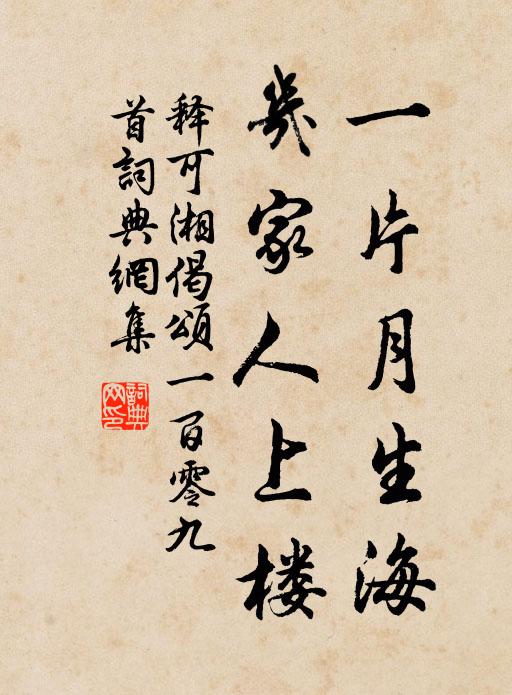 一片月生海
幾家人上楼
释可湘偈頌一百零九
首詞典網集
詞典
网印